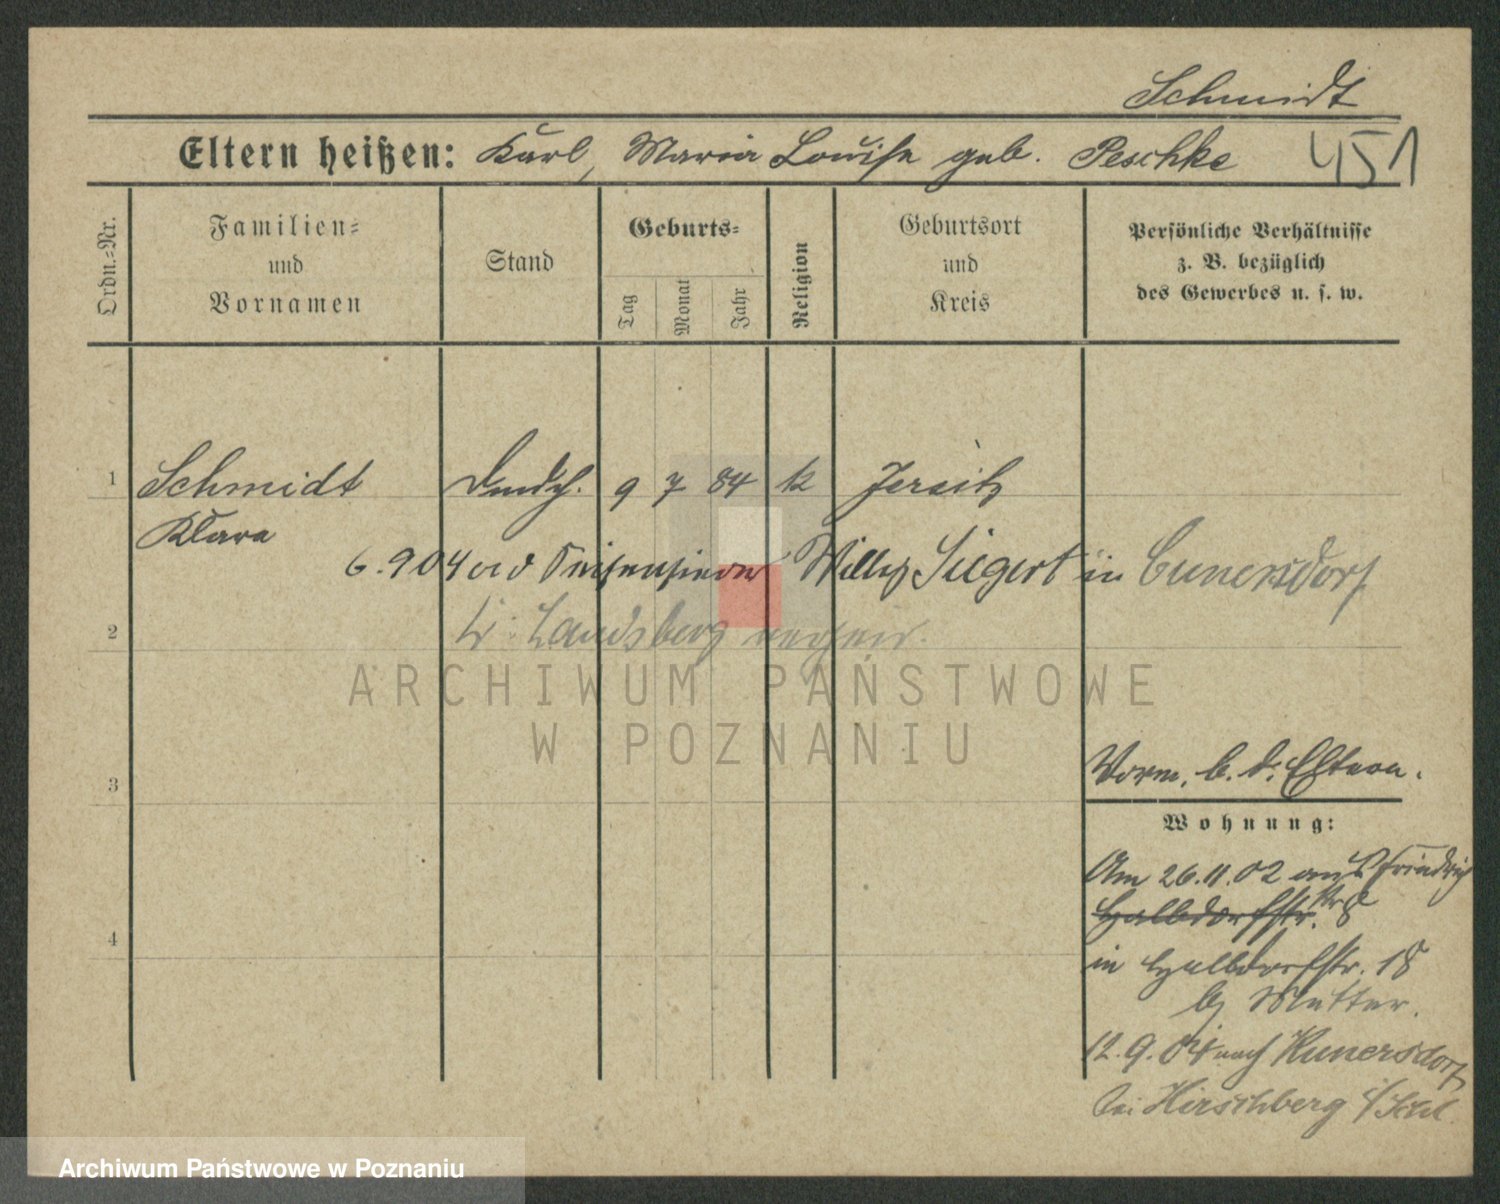 Schmidt
Eltern heißen: Karl, Maria Louise geb. Peschke 451
Ordn.-Nr.
Familien-
und
Vornamen
Stand
Geburts-
Tag
Monat
Jahr
Religion
Geburtsort
und
Kreis
Persönliche Verhältnisse
z. B. bezüglich
des Gewerbes u. s. w.
1 Schmidt 9 7 84 k Jersitz
Klara
6.9.04 Willy Siegert in Cunersdorf
2 Kr. Landsberg
ARCHIWUM PAŃSTWOWE
W POZNANIU
3
Vorm. b. d. Eltern.
Wohnung:
Am 26.11.02 aus Friedrich
str 8
Halbdorfstr.
4
in Halbdorfstr. 18
bei Mutter.
12.9.04 nach Kunersdorf
bei Hirschberg i/Schl
Archiwum Państwowe w Poznaniu